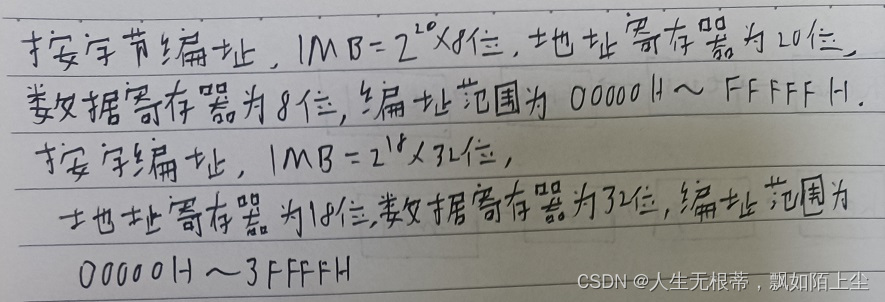 按字节编址，1MB=2²⁰×8位，地址寄存器为20位，
数据寄存器为8位，编址范围为 00000H～FFFFFH.
按字编址，1MB=2¹⁸×32位，
地址寄存器为18位,数据寄存器为32位，编址范围为
00000H～3FFFFH
CSDN @人生无根蒂，飘如陌上尘